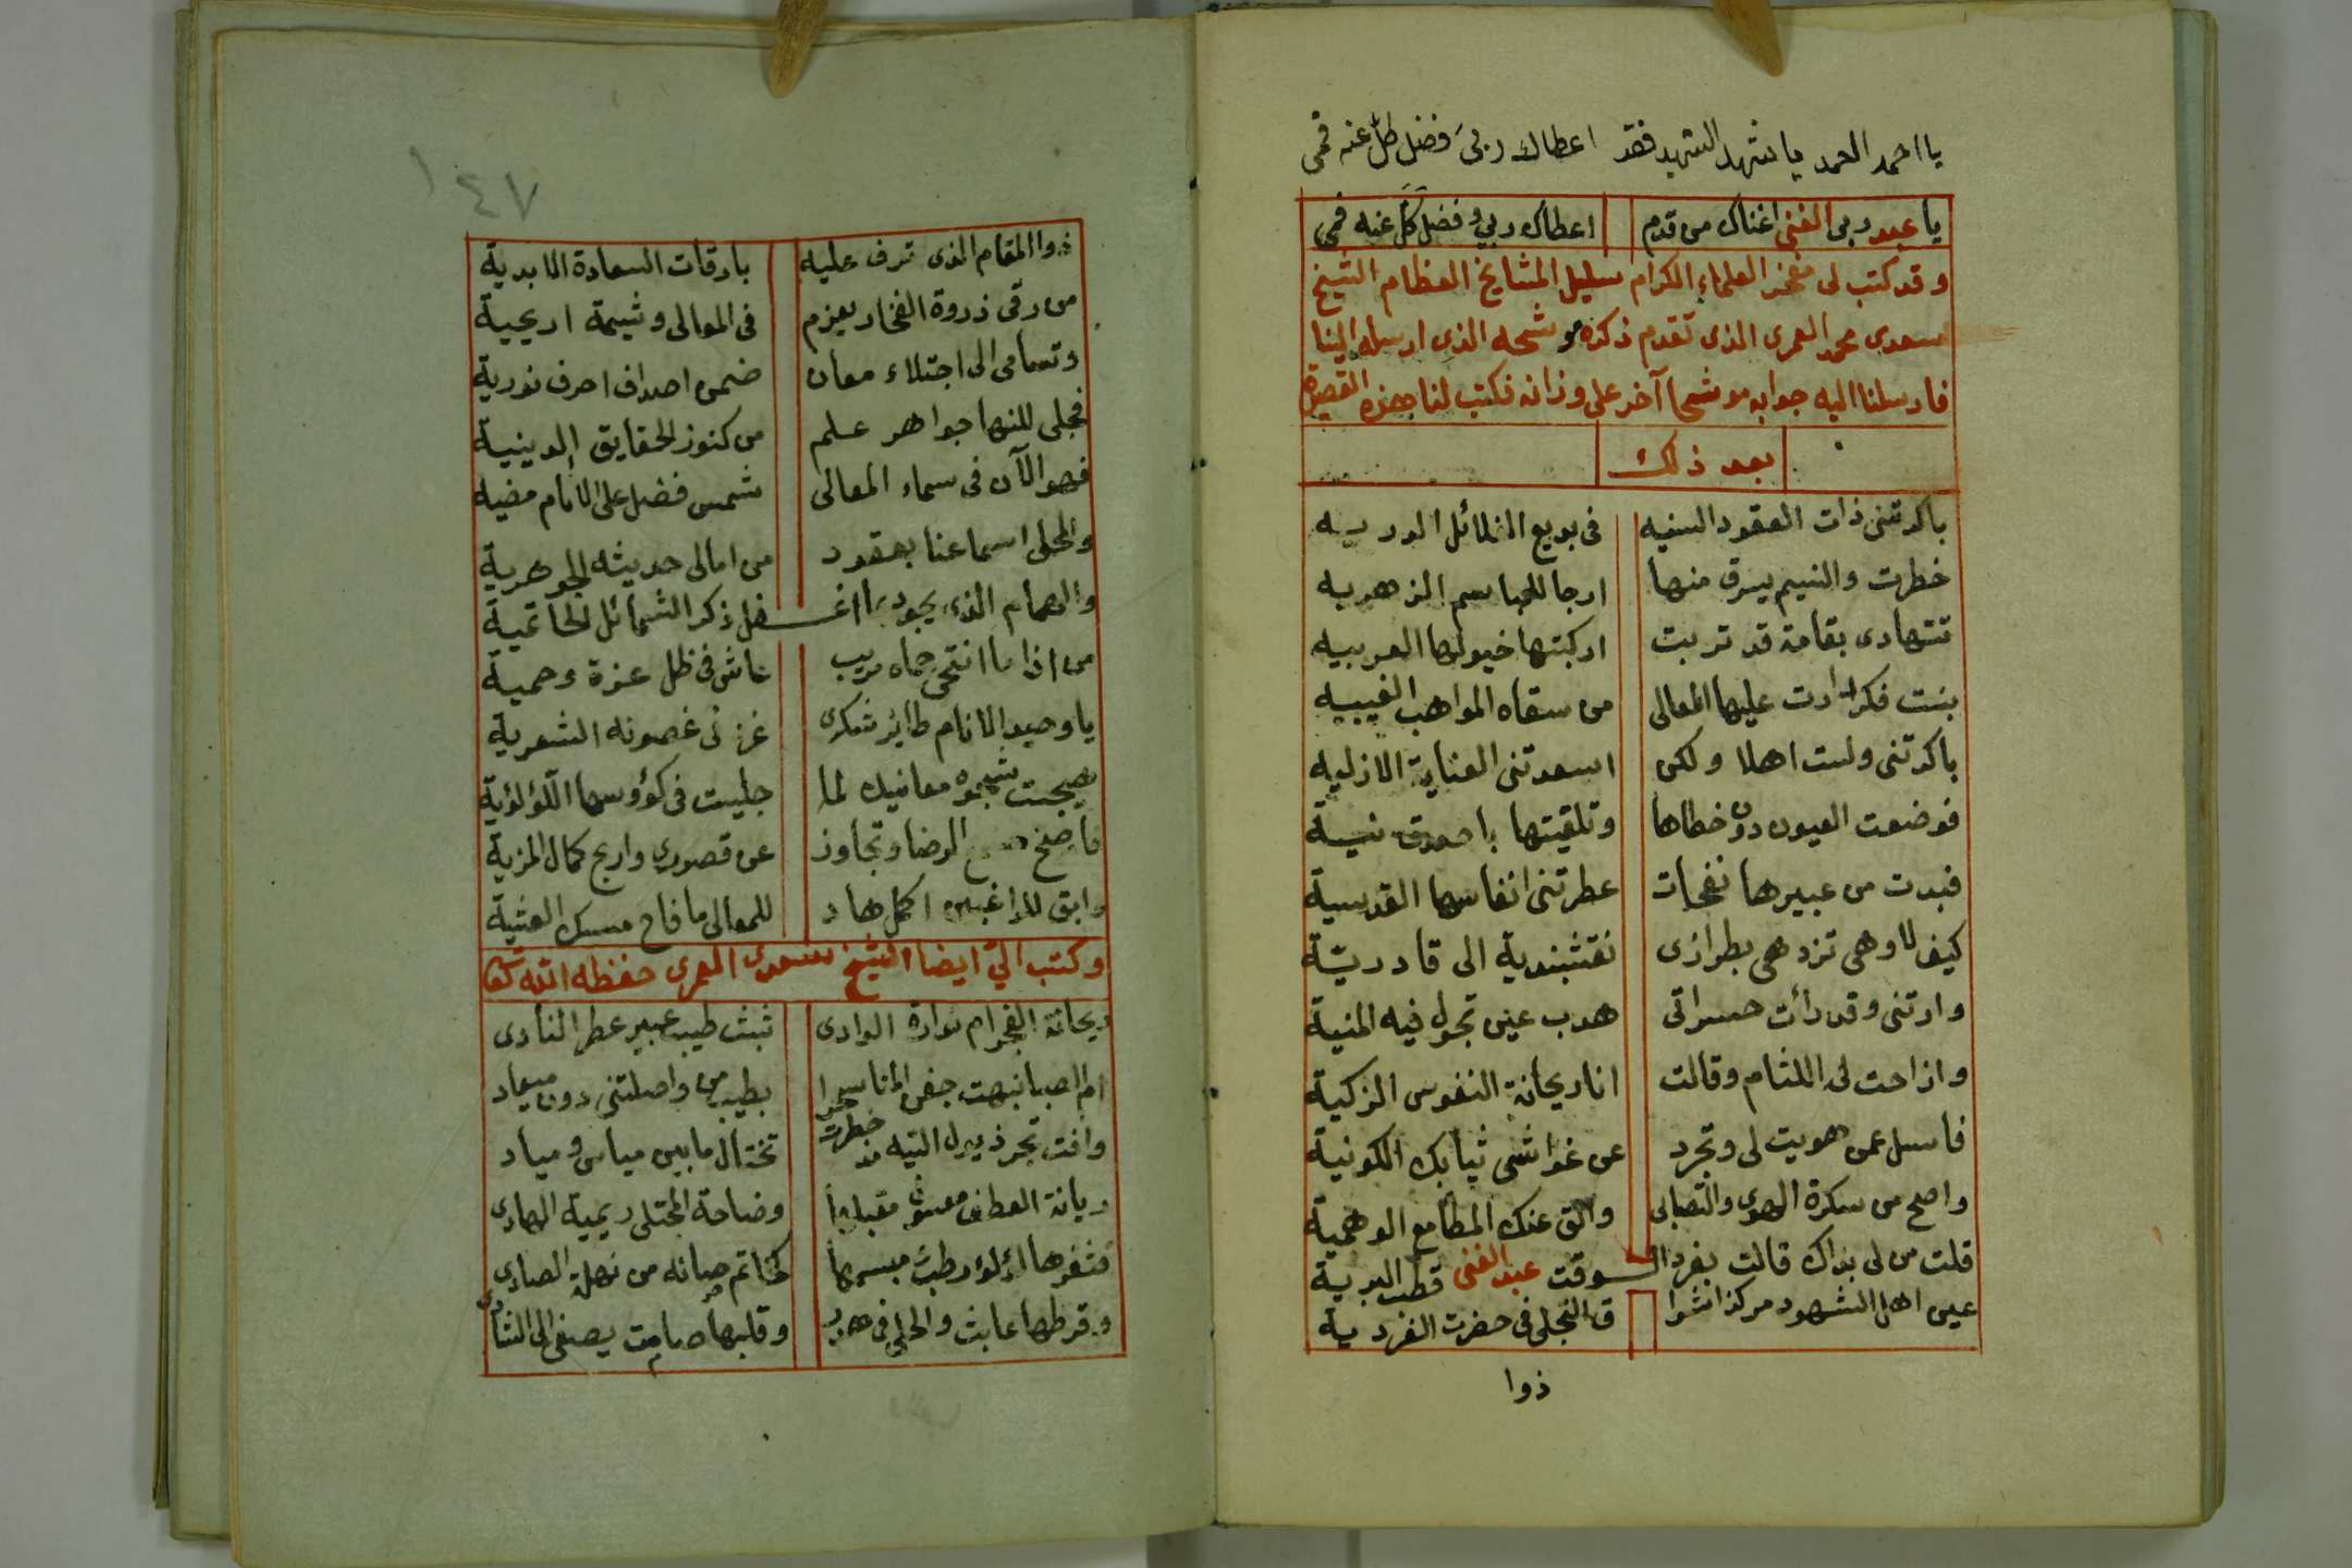 يا احمد الحمد يا شهد الشهيد فقد اعطاك ربى فضل كل عنه فمى
يا عبد ربى الغنى اغناك من قدم اعطاك ربي و فضل كل عنه فمى
وقد كتب لى مفخر العلماء الكرام سليل المشايخ العظام الشيخ
سعدى محمد العمرى الذى تقدم ذكره موشحه الذى ارسله الينا
فارسلنا اليه جوابه موشحا آخر على وزانه فكتب لنا بهذه القصيدة
بعد ذلك
باكرتنى ذات العقود السنيه فى بديع الغلائل الورديه
خطرت والنسيم يسرق منها ارجا للمباسم الزهريه
تتهادى بقامة قد تربت اركبتها خيولها العربيه
بنت فكر ادارت عليها المعالى من سقاه المواهب الغيبيه
باكرتنى ولست اهلا ولكن اسعدتنى العناية الازليه
فوضعت العيون دون خطاها وتلقيتها باصدق نيسة
فبدت من عبيرها نفحات عطرتنى انفاسها القدسية
كيف لا وهى تزدهى بطرازى نقشبندية الى قادريّة
وارتنى وقد رأت حسراتى هدب عين تجول فيه المنية
وازاحت لى اللثام وقالت انا ريحانة النفوس الزكية
فاسل عمن هويت لى وتجرد عن غواشى ثيابك الكونية
واصح من سكرة الهوى والتصابى والق عنك المطامع الوهمية
قلت من لى بذاك قالت بفرد الـوقت عبد الغنى قطب البرية
عين اهل الشهود مركز اشوا ق التجلى فى حضرت الفردية
ذوا
١٤٧
ذوا المقام الذى ترف عليه بارقات السعادة الابدية
من رقى ذروة الفخار بعزم فى المعالى وشيمة اريحية
وتسامى الى اجتلاء معان ضمن اصداف احرف نورية
فجلى للنها جواهر علم من كنوز الحقايق الدينية
فهو الآن فى سماء المعالى شمس فضل على الانام مضيه
والمحلى اسماعنا بعقود من امالى حديثه الجوهرية
والهمام الذى يجود بما اغـفل ذكر الشمائل الحاتمية
من اذا ما انتحى حماه مريب عاش فى ظل عزة وحمية
يا وحيد الانام طاير شكرى غر فى غصونه الشعرية
هيجت شجوه معانيك لما جليت فى كؤوسها اللؤلؤية
فاصفح الرضا وتجاوز عن قصورى وارج كمال المزية
وابق للراغبين اكمل هاد للمعالى ما فاح مسك العشية
وكتب اليّ ايضا الشيخ سعدى العمرى حفظه الله تعالى
ريحانة الفجر ام نوارة الوادى ثبثت طيب عبير عطر النادى
ام الصبا نبهت جفن المنا سحرا بطيب من واصلتنى دون ميعاد
وافت تجر ذيول التيه مذ خطرت تختال ما بين مياس ومياد
ريانة العطف معسول مقبلها وضاحة المجتلى ريمية الهادى
فثغرها لؤلؤ رطب مبسمها كخاتم صانه من نهلة الصادى
وقرطها عابث والحلى فى هرج وقلبها صامت يصغى الى الشادى